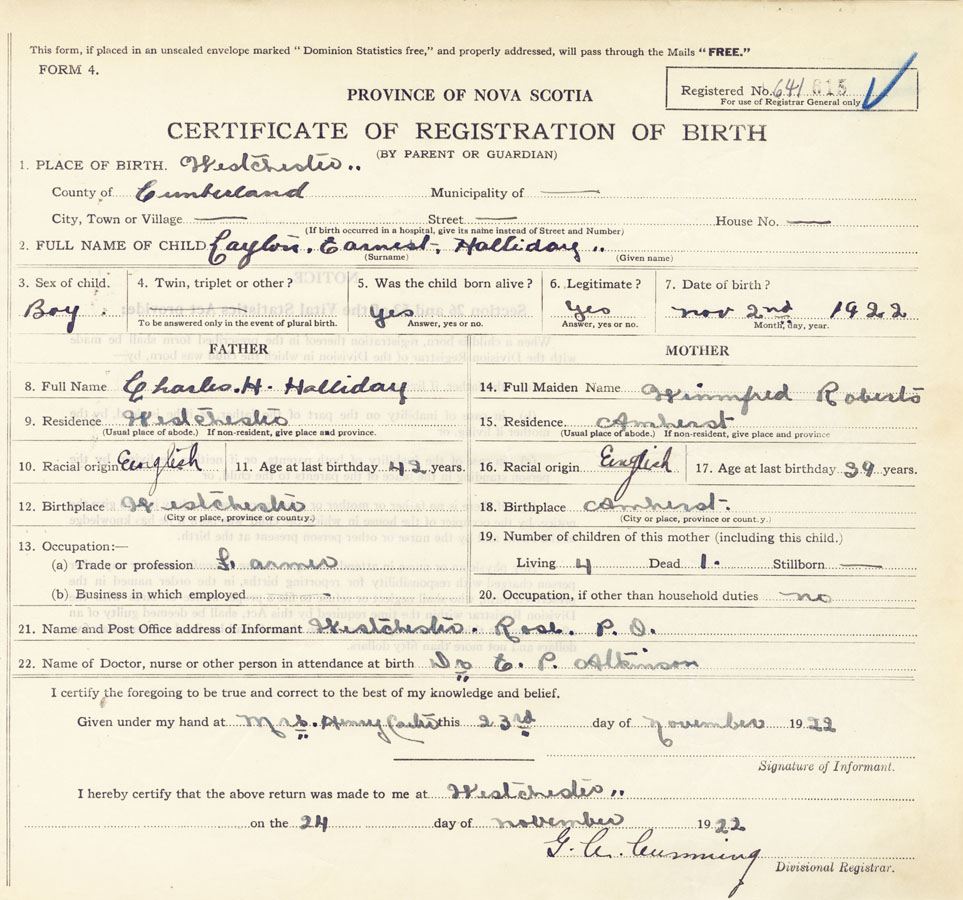 This form, if placed in an unsealed envelope marked "Dominion Statistics free," and properly addressed, will pass through the Mails "FREE."
FORM 4.
Registered No. 641
For use of Registrar General only
PROVINCE OF NOVA SCOTIA
CERTIFICATE OF REGISTRATION OF BIRTH
(BY PARENT OR GUARDIAN)
1. PLACE OF BIRTH. Westchester
County of Cumberland Municipality of —
City, Town or Village — Street — House No. —
(If birth occurred in a hospital, give its name instead of Street and Number)
2. FULL NAME OF CHILD Caylon. Earnest. Halliday
(Surname) (Given name)
3. Sex of child. 4. Twin, triplet or other? 5. Was the child born alive? 6. Legitimate? 7. Date of birth?
Boy. — Yes Yes nov 2nd 1922
To be answered only in the event of plural birth. Answer, yes or no. Answer, yes or no. Month, day, year.
FATHER MOTHER
8. Full Name Charles. H. Halliday 14. Full Maiden Name Winnifred Roberts
9. Residence Westchester 15. Residence. Amherst
(Usual place of abode.) If non-resident, give place and province. (Usual place of abode.) If non-resident, give place and province
10. Racial origin English 11. Age at last birthday 42 years. 16. Racial origin English 17. Age at last birthday 39 years.
12. Birthplace Westchester 18. Birthplace Amherst.
(City or place, province or county.) (City or place, province or county.)
13. Occupation:— 19. Number of children of this mother (including this child.)
(a) Trade or profession Farmer Living 4 Dead 1. Stillborn —
(b) Business in which employed - 20. Occupation, if other than household duties no
21. Name and Post Office address of Informant Westchester. Rose. P. O.
22. Name of Doctor, nurse or other person in attendance at birth Dr E. P. Atkinson
I certify the foregoing to be true and correct to the best of my knowledge and belief.
Given under my hand at Mrs. Henry this 23rd day of november 1922
Signature of Informant.
I hereby certify that the above return was made to me at Westchester
on the 24 day of november 1922
G. A. Cumming
Divisional Registrar.